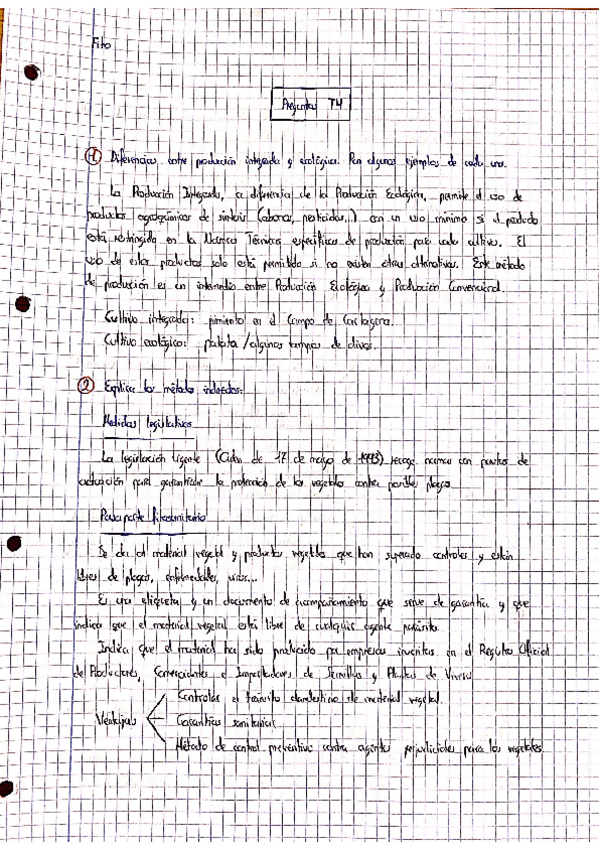 Fito
Preguntas T4
① Diferencias entre producción integrada y ecológica. Pon algunos ejemplos de cada una.
La Producción Integrada, a diferencia de la Producción Ecológica, permite el uso de
productos agroquímicos de síntesis (abonos, pesticidas,) con un uso mínimo si el producto
está restringido en la Normas Técnicas específicas de producción para cada cultivo. El
uso de estos productos solo está permitido si no existen otras alternativas. Este método
de producción es un intermedio entre Producción Ecológica y Producción Convencional.
Cultivo integrado: pimiento en el Campo de Cartagena.
Cultivo ecológico: patata / algunos campos de olivos.
② Explica los métodos indirectos:
Medidas legislativas
La legislación vigente (Orden de 17 de mayo de 1993) recoge normas con pautas de
actuación para garantizar la protección de los vegetales contra posibles plagas
Pasaporte fitosanitario
Se da al material vegetal y productos vegetales que han superado controles y están
libres de plagas, enfermedades, virus...
Es una etiqueta y un documento de acompañamiento que sirve de garantía y que
indica que el material vegetal está libre de cualquier agente parásito.
Indica que el material ha sido producido por empresas inscritas en el Registro Oficial
de Productores, Comerciantes e Importadores de Semillas y Plantas de Vivero
Controlar el tránsito clandestino de material vegetal.
Ventajas
Garantías sanitarias
Método de control preventivo contra agentes perjudiciales para los vegetales